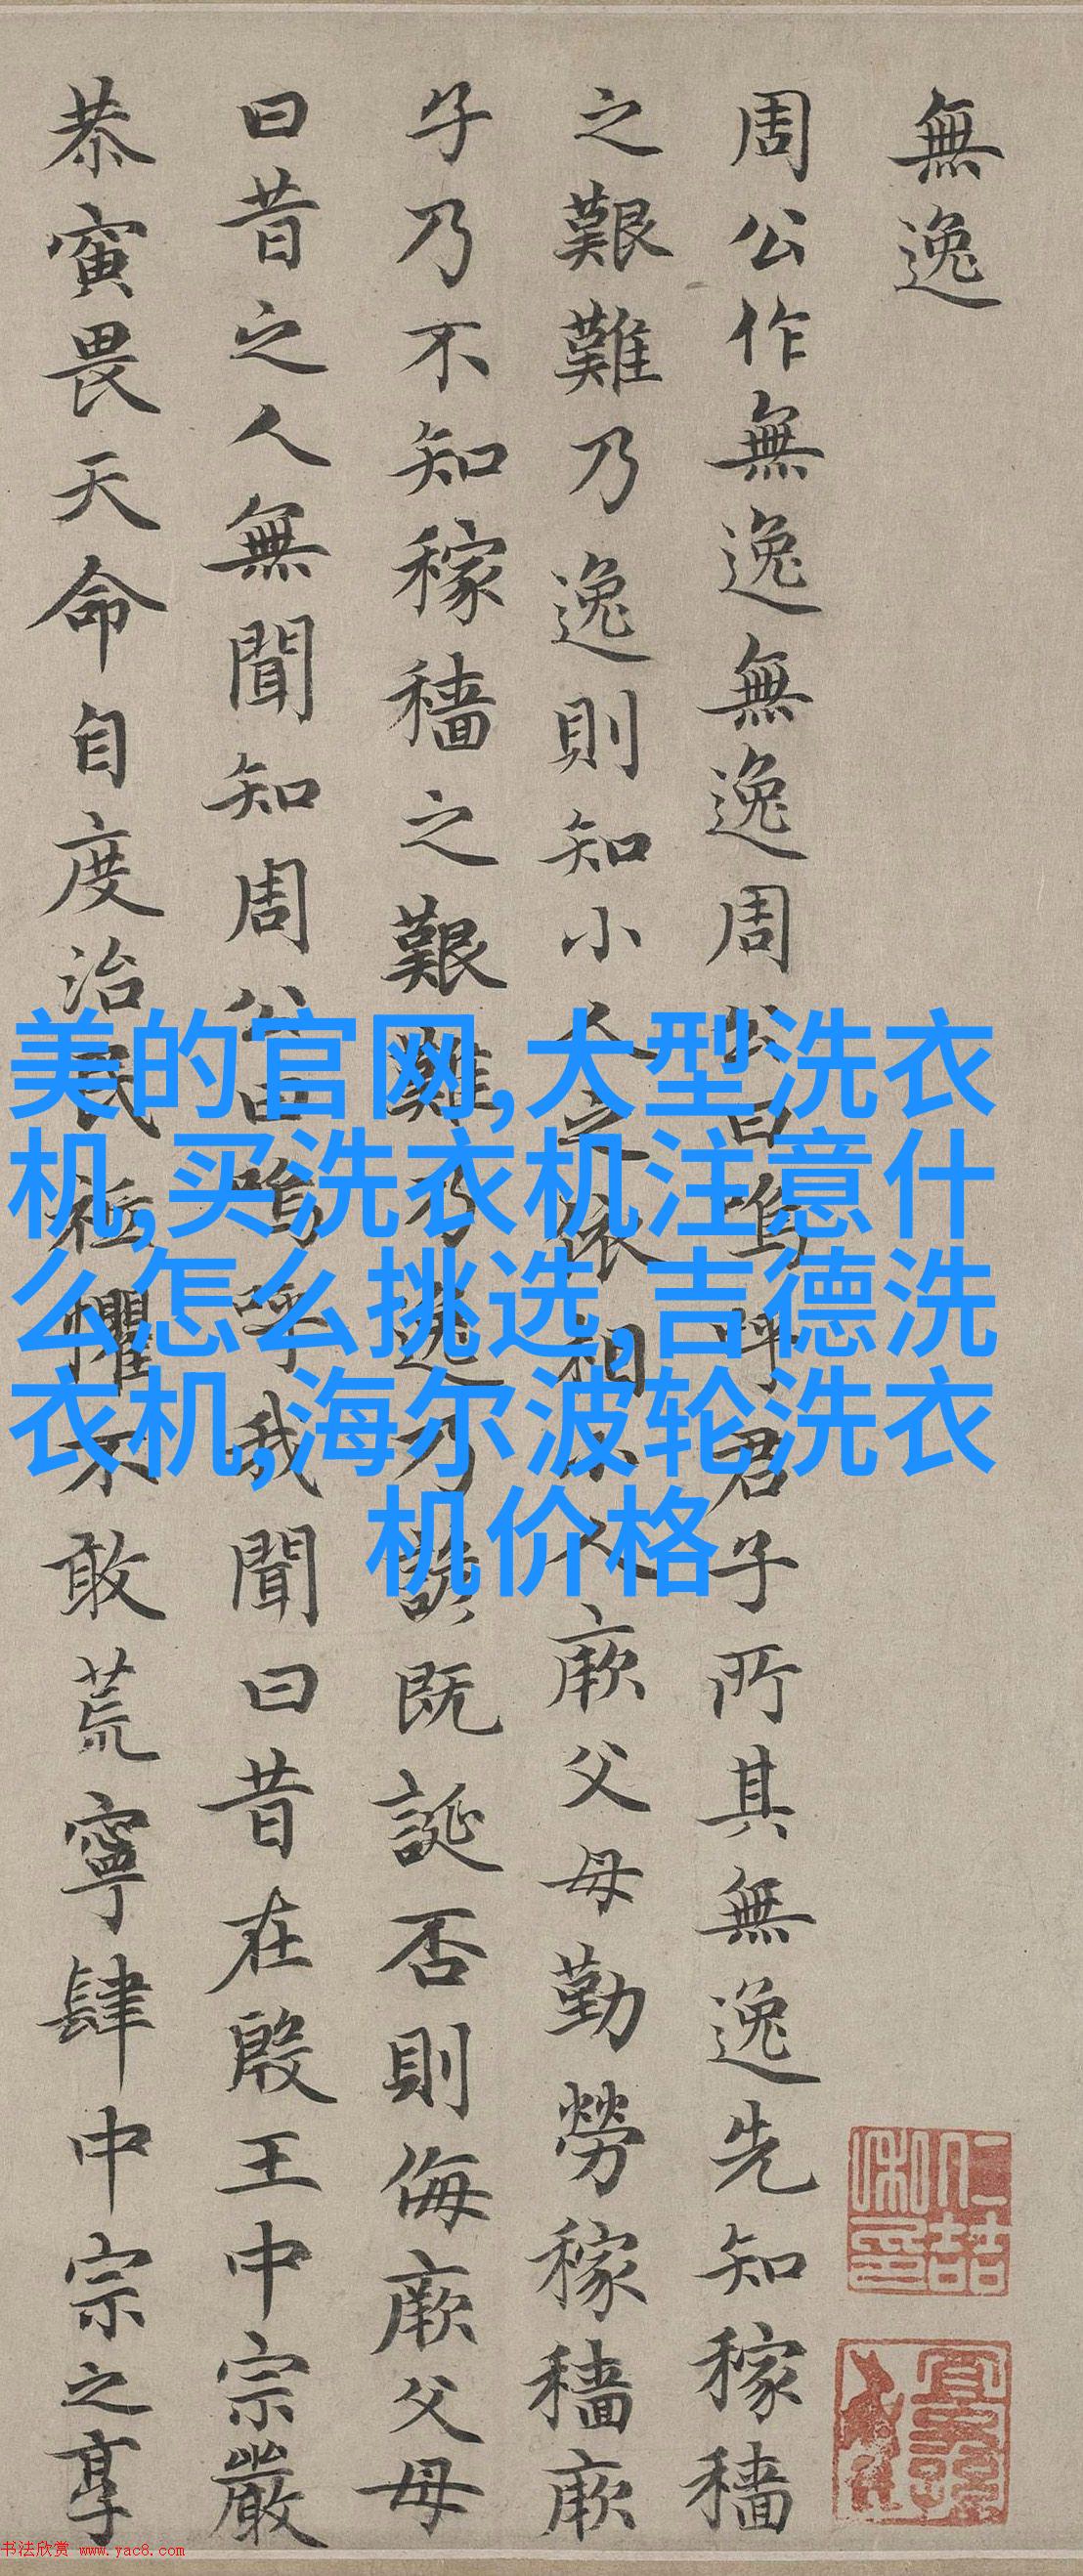 無逸
周公作無逸無逸周公曰嗚呼君子所其無逸先知稼穡
之艱難乃逸則知小人之依相小人厥父母勤勞稼穡厥
子乃不知稼穡之艱難乃逸乃諺既誕否則侮厥父母
曰昔之人無聞知周公曰嗚呼我聞曰昔在殷王中宗嚴
恭寅畏天命自度治民祗懼不敢荒寧肆中宗之享
美的官网,大型洗衣
机,买洗衣机注意什
么怎么挑选,吉德洗
衣机,海尔波轮洗衣
机价格
书法欣赏 www.yac8.com